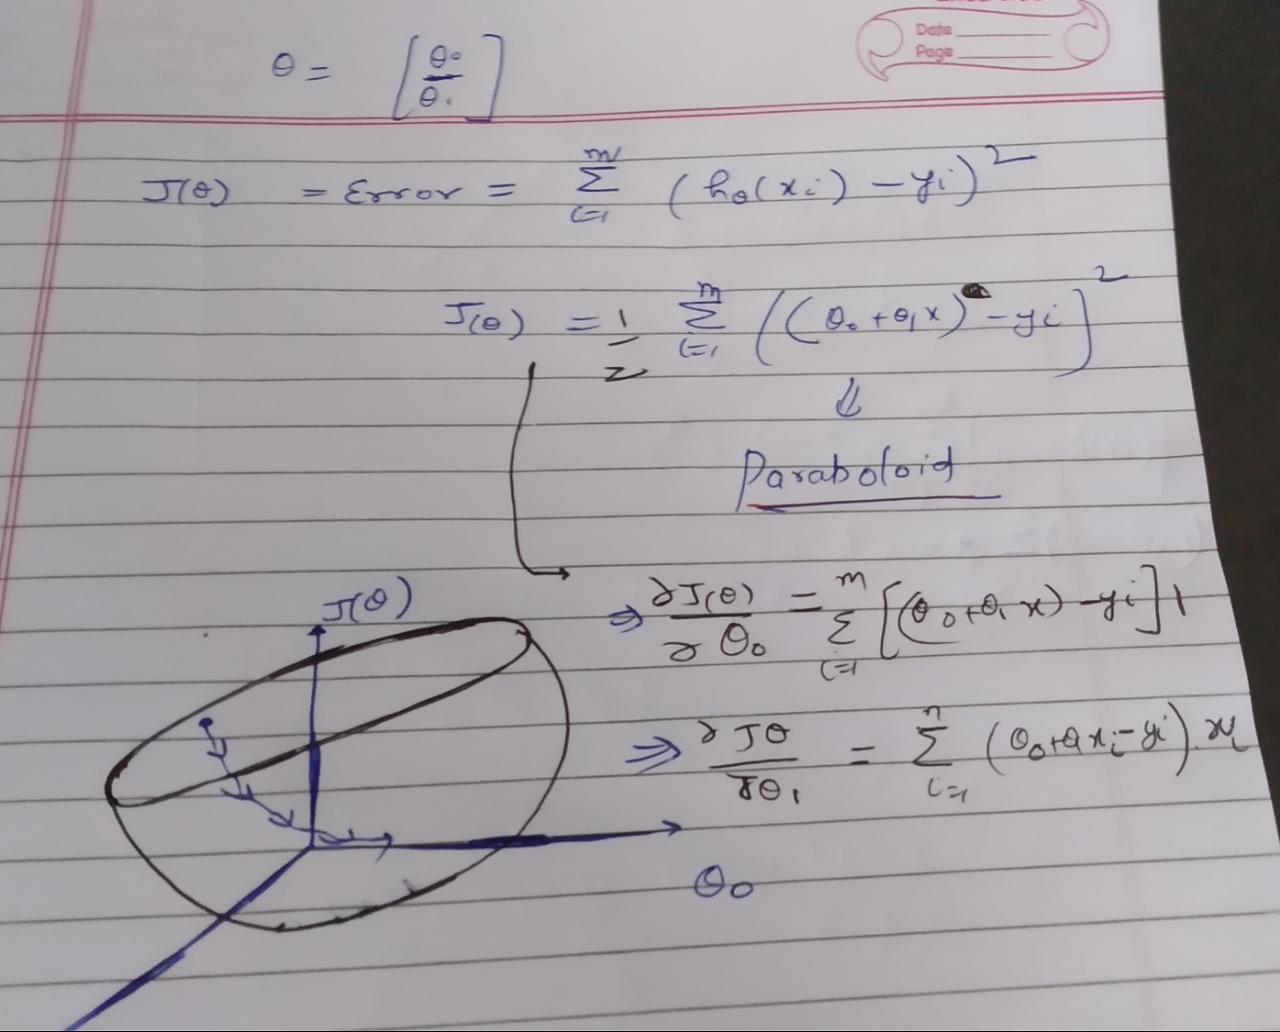 Date
Page
θ = [θ₀ / θ₁]
J(θ) = Error = m Σ i=1 (hθ(xi) - yi)²
J(θ) = 1/2 m Σ i=1 ((θ₀ + θ₁x) - yi]²
⇓
Paraboloid
⇒ ∂J(θ)/∂θ₀ = m Σ i=1 [(θ₀+θ₁x) - yi] 1
J(θ)
⇒ ∂Jθ/∂θ₁ = n Σ i=1 (θ₀+θ₁xi - yi).xi
θ₀